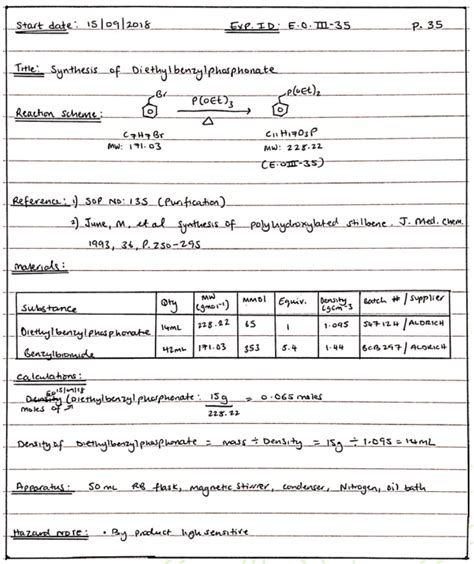 Start date: 15/09/2018 Exp. ID: E.O.III-35 P. 35
Title: Synthesis of Diethylbenzylphosphonate
Br P(OEt)3 P(OEt)2
Reaction Scheme: Δ
C7H7Br C11H17O3P
MW: 171.03 MW: 228.22
(E.OIII-35)
Reference: 1) SOP NO: 135 (Purification)
2) June, M, et al Synthesis of polyhydroxylated stilbene. J. Med. Chem.
1993, 36, P. 250-295
Materials:
Substance Qty MW (gmol-1) mmol Equiv. Density (gcm-3 Batch # / Supplier
Diethylbenzylphosphonate 14mL 228.22 65 1 1.095 507124/ALDRICH
Benzylbromide 42mL 171.03 353 5.4 1.44 BCB297/ALDRICH
Calculations:
15/09/18
Density (Diethylbenzylphosphonate: 15g = 0.065 moles
moles of 228.22
Density of Diethylbenzylphosphonate = mass ÷ Density = 15g ÷ 1.095 = 14mL
Apparatus: 50 mL RB flask, magnetic stirrer, condenser, Nitrogen, oil bath
Hazard note: • By product light sensitive